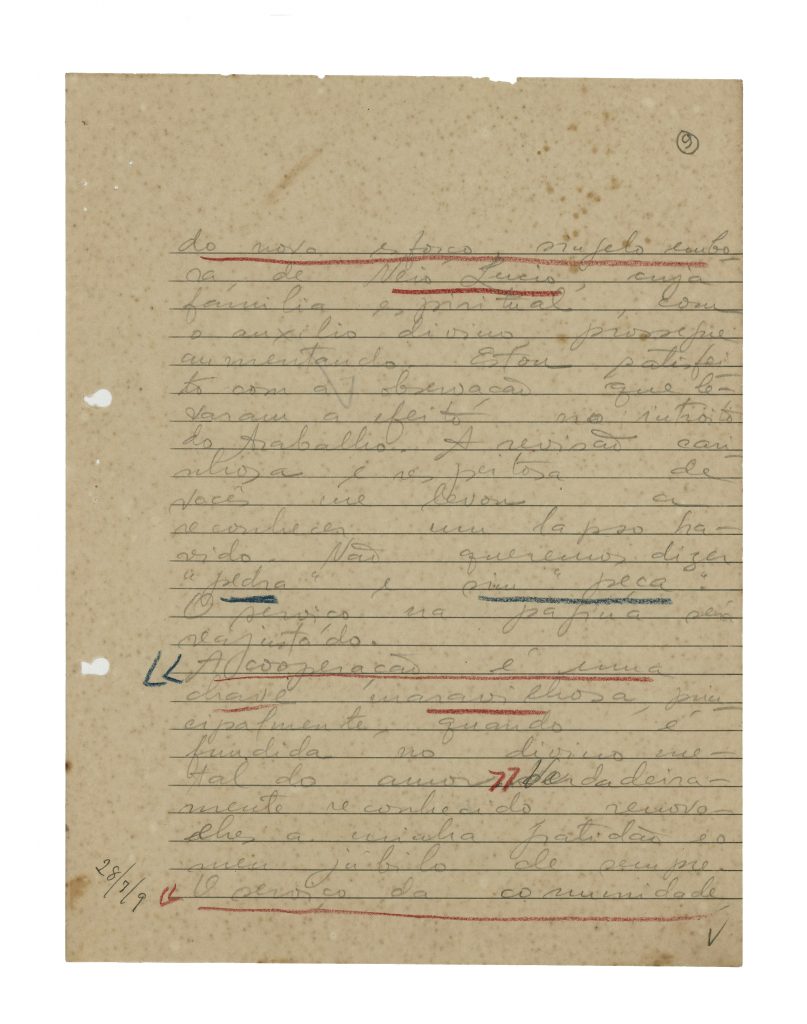 9
do novo esforço, singelo embo-
ra de Neio Lucio, cuja
família espiritual, com
o auxílio divino prossegue
aumentando. Estou satisfei-
to com a observação que le-
varam a efeito no introito
do trabalho. A revisão cari-
nhosa e respeitosa de
vocês me levou a
reconhecer um lapso ha-
vido. Não queremos dizer
"pedra" e sim "peça".
O serviço na página será
reajustado.
"A cooperação é uma
chave maravilhosa, prin-
cipalmente, quando é
fundida no divino me-
tal do amor" Verdadeira-
mente reconhecido renovo-
lhes a minha gratidão e o
meu júbilo de sempre.
28/7/9
"O serviço da comunidade,